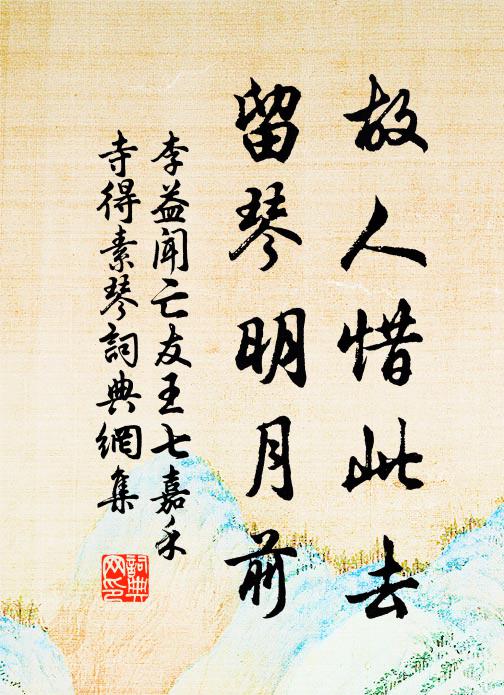 故人惜此去
留琴明月前
李益闻亡友王七嘉禾
寺得素琴詞典網集
詞典
网印